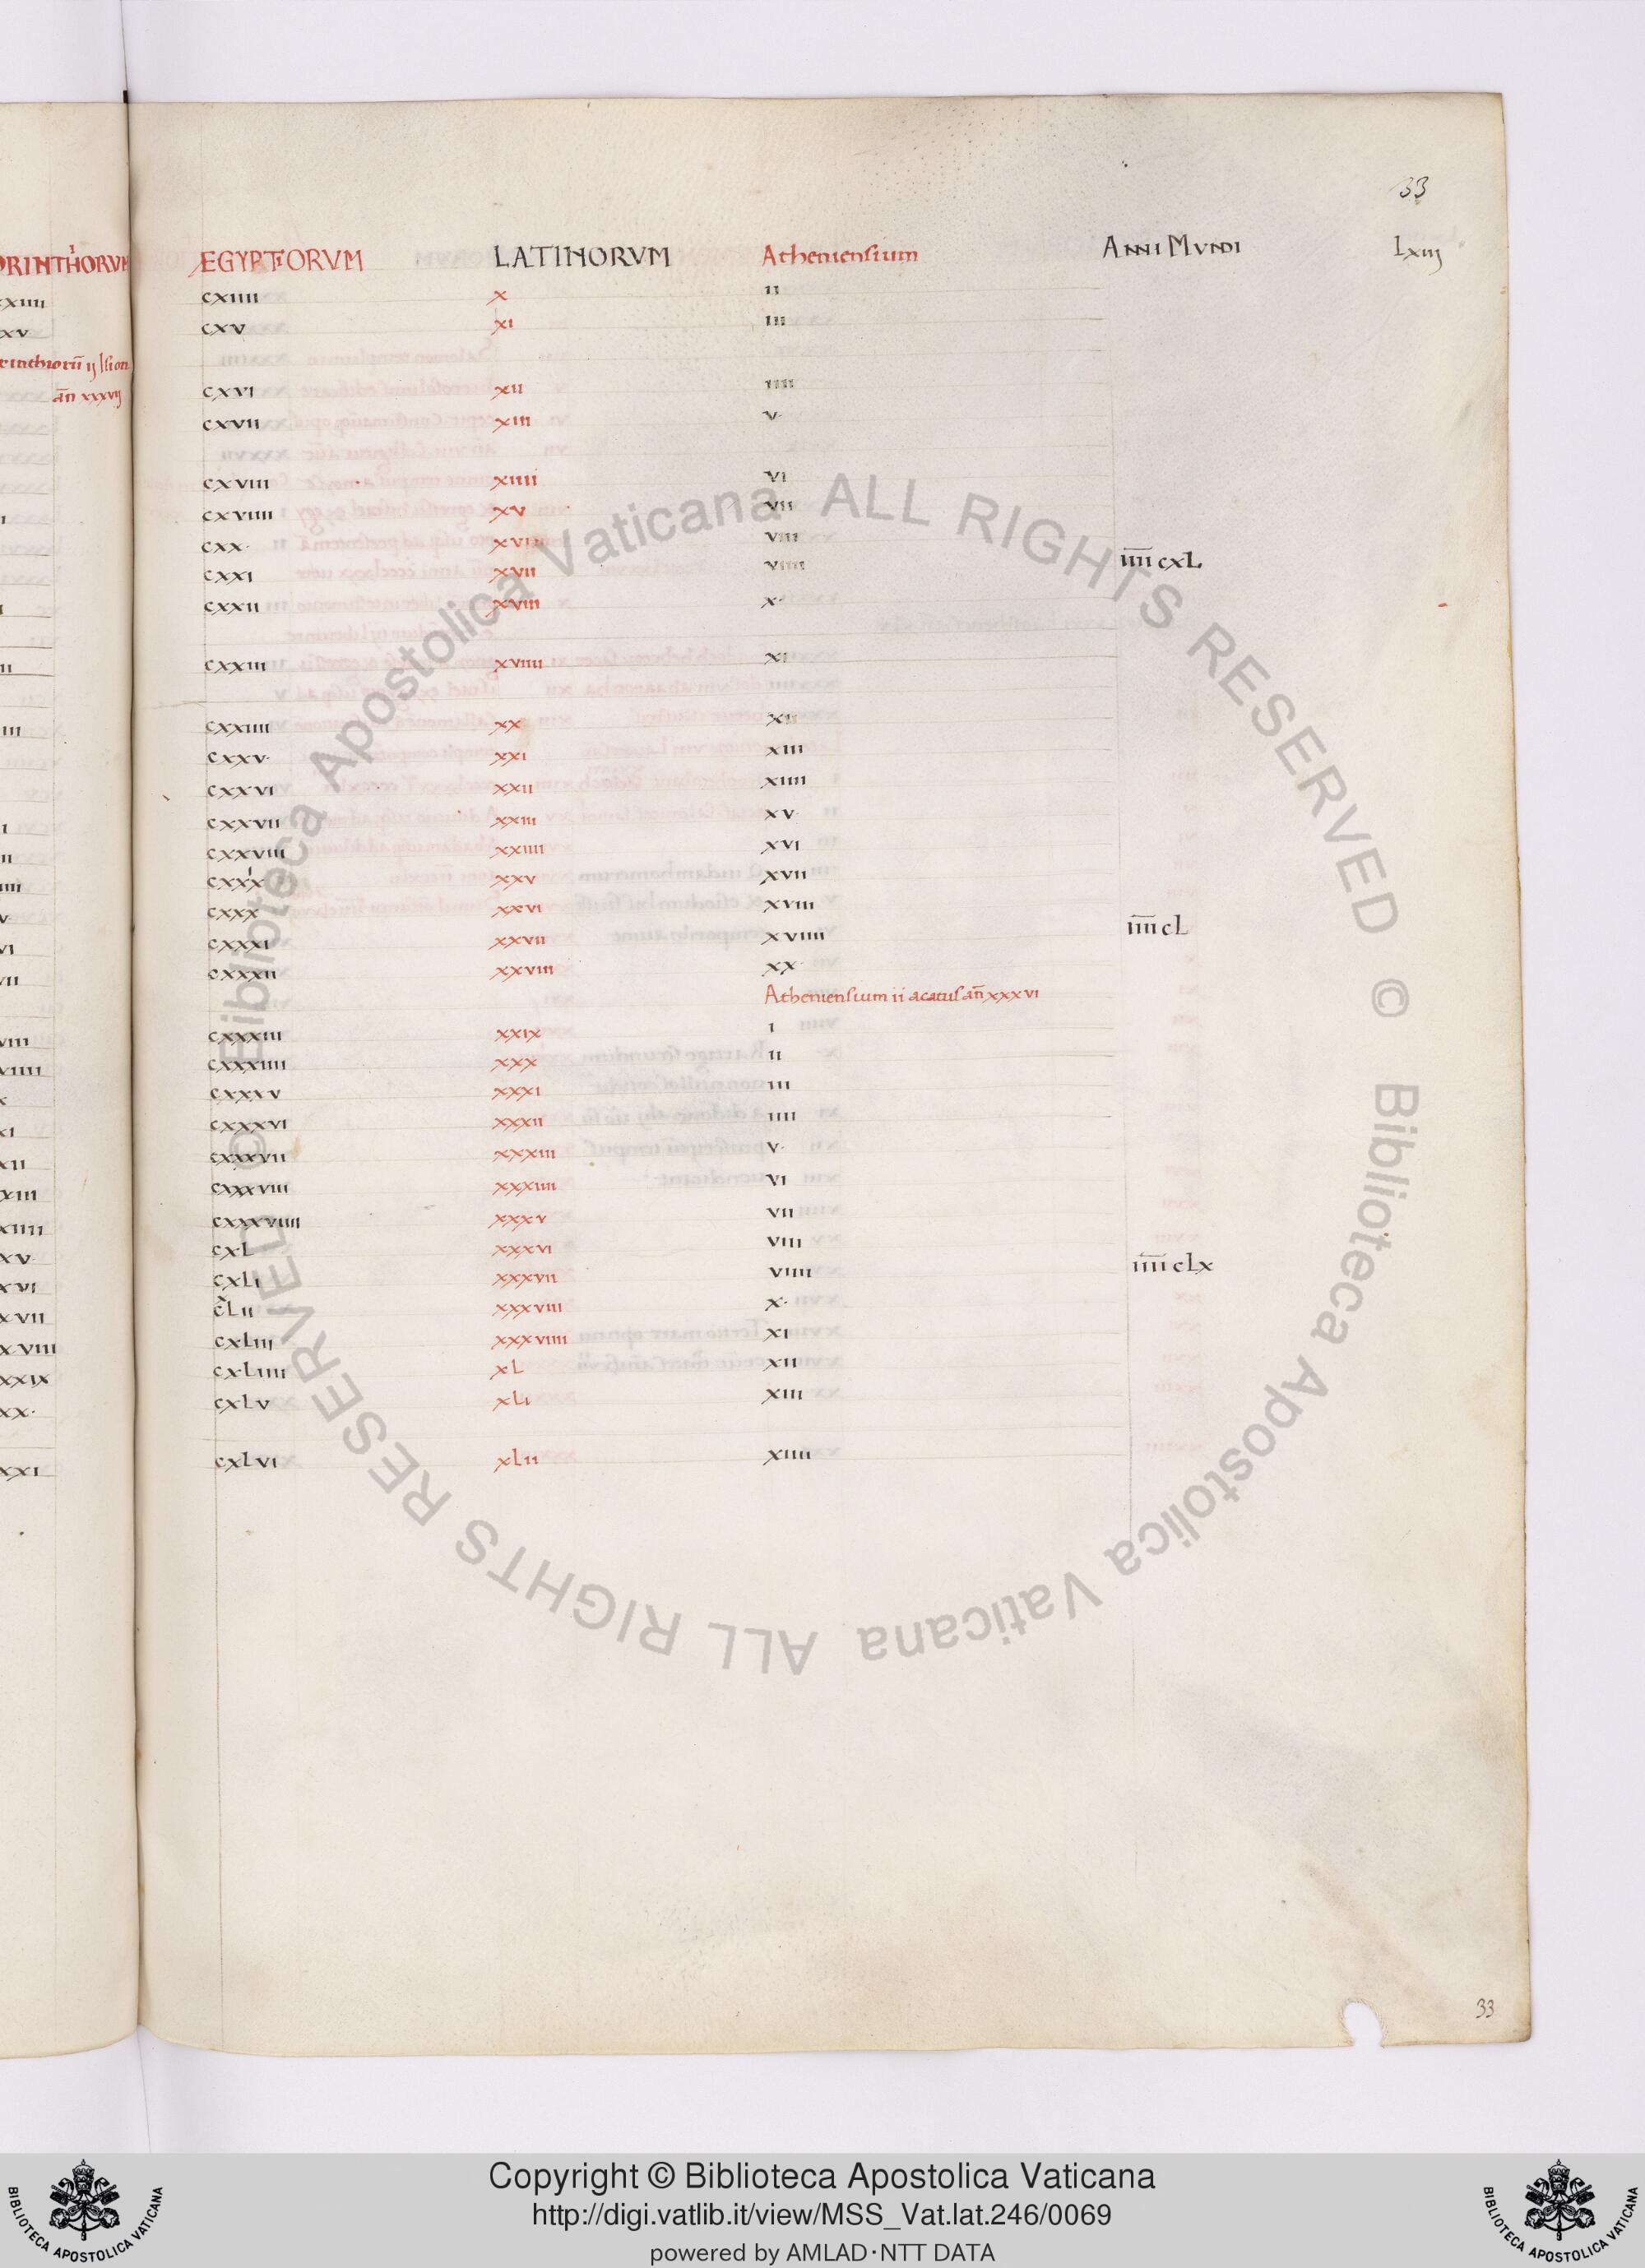 33
ORINTHORVM ÆGYPTIORVM LATINORVM Atheniensium ANNI MVNDI Lxiij
CXIIII X II
CXV XI III
CXVI XII IIII
CXVII XIII V
CXVIII XIIII VI
CXVIIII XV VII
CXX XVI VIII
CXXI XVII VIIII IIIICXL
CXXII XVIII X
CXXIII XVIIII XI
CXXIIII XX XII
CXXV XXI XIII
CXXVI XXII XIIII
CXXVII XXIII XV
CXXVIII XXIIII XVI
CXXIX XXV XVII
CXXX XXVI XVIII
CXXXI XXVII XVIIII IIIICL
CXXXII XXVIII XX
Atheniensium ii acatus an̄ xxxvi
CXXXIII XXIX I
CXXXIIII XXX II
CXXXV XXXI III
CXXXVI XXXII IIII
CXXXVII XXXIII V
CXXXVIII XXXIIII VI
CXXXVIIII XXXV VII
CXL XXXVI VIII
CXLI XXXVII VIIII IIIICLX
CXLII XXXVIII X
CXLIII XXXVIIII XI
CXLIIII XL XII
CXLV XLI XIII
CXLVI XLII XIIII
33
© Biblioteca Apostolica Vaticana ALL RIGHTS RESERVED © Biblioteca Apostolica Vaticana ALL RIGHTS RESERVED
Copyright © Biblioteca Apostolica Vaticana
http://digi.vatlib.it/view/MSS_Vat.lat.246/0069
powered by AMLAD·NTT DATA
BIBLIOTECA APOSTOLICA VATICANA
BIBLIOTECA APOSTOLICA VATICANA